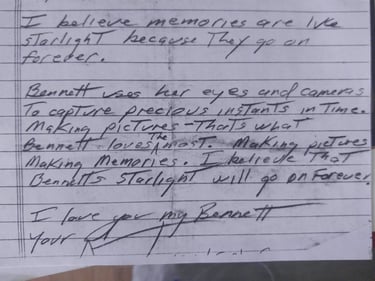 I believe memories are like
starlight because they go on
forever.
Bennett uses her eyes and cameras
To capture precious instants in Time.
Making pictures - That's what
Bennett loves The most. Making pictures
Making Memories. I believe That
Bennett's starlight will go on Forever.
I love you my Bennett
your